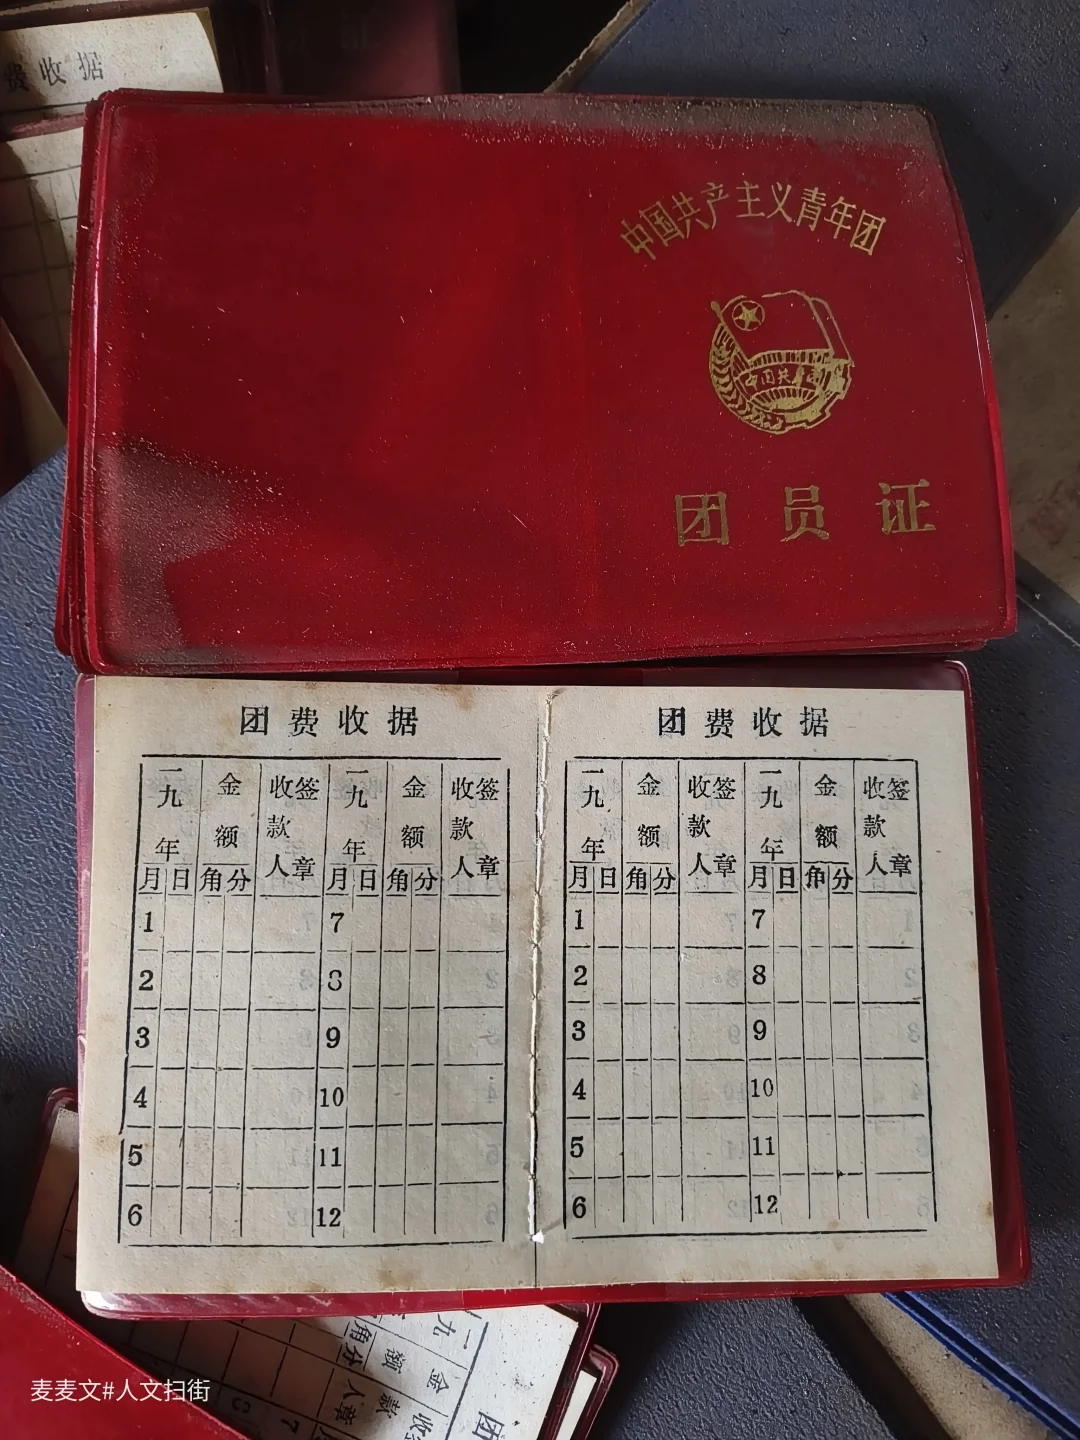 费收据
中国共产主义青年团
中国共青团
团员证
团费收据 团费收据
一九 年 金额 收款人 签章 一九 年 金额 收款人 签章
月 日 角 分 月 日 角 分
1 7
2 8
3 9
4 10
5 11
6 12
一九 年 金额 收款人 签章 一九 年 金额 收款人 签章
月 日 角 分 月 日 角 分
1 7
2 8
3 9
4 10
5 11
6 12
麦麦文#人文扫街